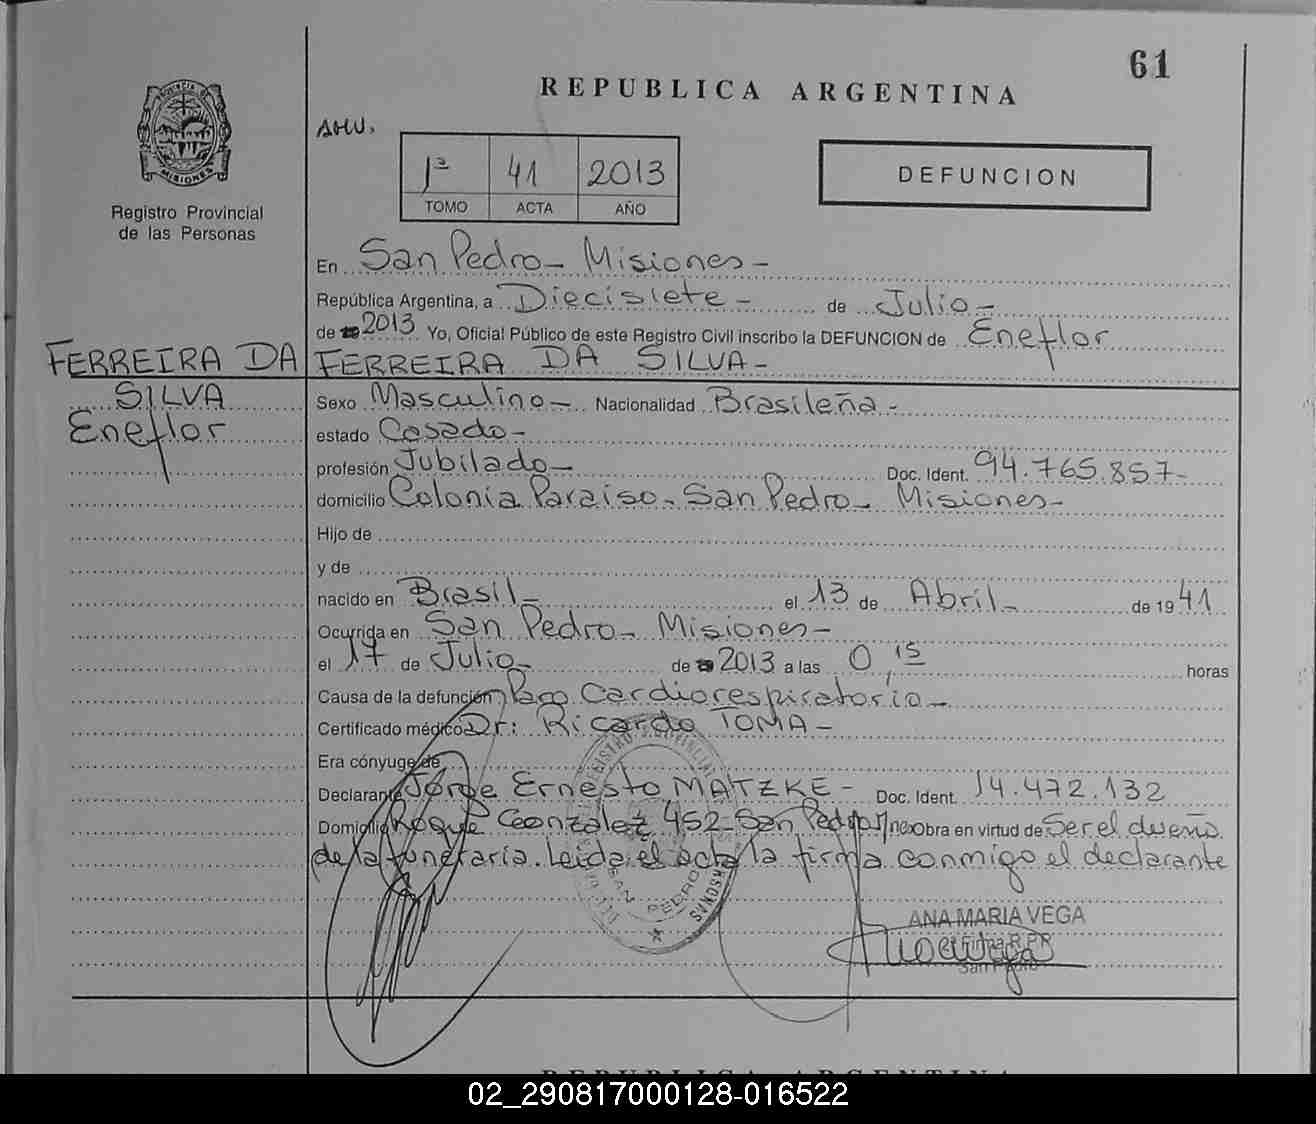 61
REPUBLICA ARGENTINA
PROVINCIA DE
MISIONES
Registro Provincial
de las Personas
1ª 41 2013
TOMO ACTA AÑO
DEFUNCION
En San Pedro - Misiones -
República Argentina, a Diecisiete - de Julio -
de 2013 Yo, Oficial Público de este Registro Civil inscribo la DEFUNCION de Eneflor
FERREIRA DA SILVA -
FERREIRA DA
SILVA
Eneflor
Sexo Masculino - Nacionalidad Brasileña -
estado Casado -
profesión Jubilado - Doc. Ident. 94.765.857 -
domicilio Colonia Paraiso - San Pedro - Misiones -
Hijo de
y de
nacido en Brasil - el 13 de Abril - de 19 41
Ocurrida en San Pedro - Misiones -
el 17 de Julio - de 2013 a las 0,15 horas
Causa de la defunción Paro Cardiorespiratorio -
Certificado médico Dr: Ricardo TOMA -
Era cónyuge de
Declarante Jorge Ernesto MATZKE - Doc. Ident. 14.472.132
Domicilio Roque Gonzalez 452 - San Pedro Mnes Obra en virtud de Ser el dueño
de la funeraria. Leida el acta la firma conmigo el declarante
REGISTRO PROVINCIAL
SAN PEDRO
ANA MARIA VEGA
Firma R.P.P.
San Pedro
REPUBLICA ARGENTINA
02_290817000128-016522